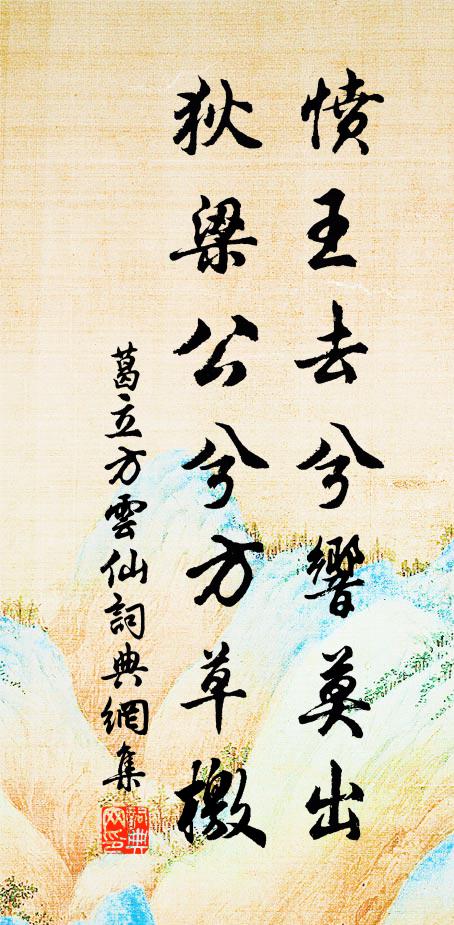 憤王去兮響莫出
狄梁公兮方草檄
葛立方雲仙詞典網集
詞典网印